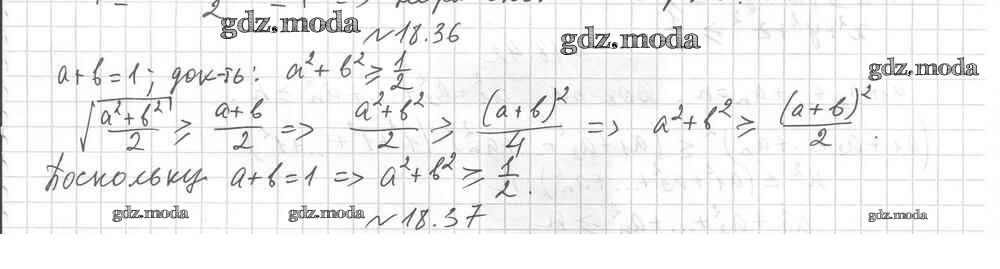 gdz.moda
№18.36
gdz.moda
a+b=1; док-ть: a²+b² ≥ 1/2
gdz.moda
√((a²+b²)/2) ≥ (a+b)/2 => (a²+b²)/2 ≥ (a+b)²/4 => a²+b² ≥ (a+b)²/2.
Поскольку a+b=1 => a²+b² ≥ 1/2.
gdz.moda gdz.moda №18.37 gdz.moda